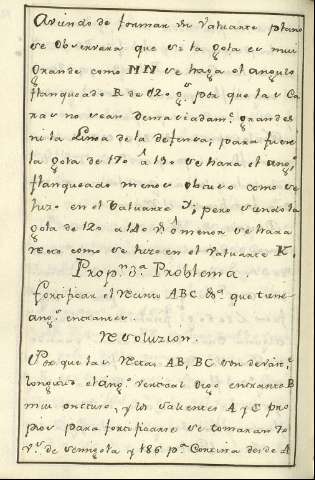 Aviendo de formar un valuarte plano
se observara que si la gola es mui
grande como MN se haga el angulo
flanqueado R de 120 g.s por que las Ca
ras no sean demasiadam.te grandes
ni la Linea de la defensa; para fuere
la gola de 170 á 150 se hara el ang.o
flanqueado menos obtuso como se
hizo en el valuarte Y; pero siendo la
gola de 120 a 140 ó menos se hara
recto como se hizo en el valuarte K.
Prop.n 3.a Problema.
Fortificar el recinto ABC &.a que tiene
ang.s entrantes.
resoluzion.
Por que las rectas AB, BC son de
longitud el ang.o entrante B
mui obtuso, y los valientes A y C pro
pios para fortificarse se tomaran 70
v.s de semigola y 186 p.a Cortina desde A